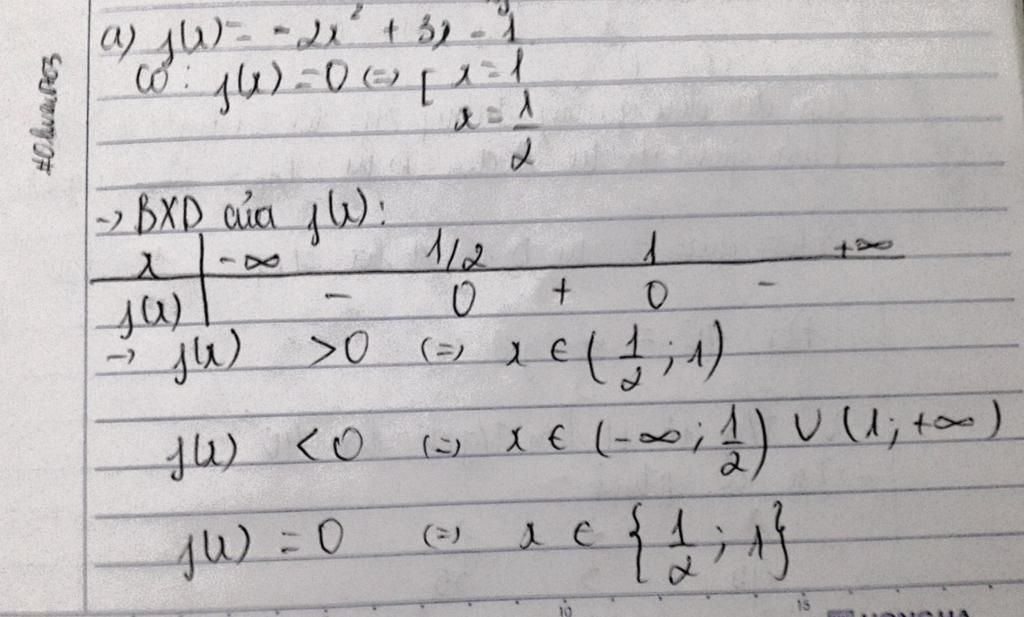 a) f(x) = -2x² + 3x - 1
Có: f(x) = 0 (=) [ x = 1
x = 1/2
-> BXD của f(x):
x | -∞ 1/2 1 +∞
f(x) | - 0 + 0 -
-> f(x) > 0 (=) x ∈ (1/2 ; 1)
f(x) < 0 (=) x ∈ (-∞; 1/2) ∪ (1; +∞)
f(x) = 0 (=) x ∈ {1/2 ; 1}
10 15